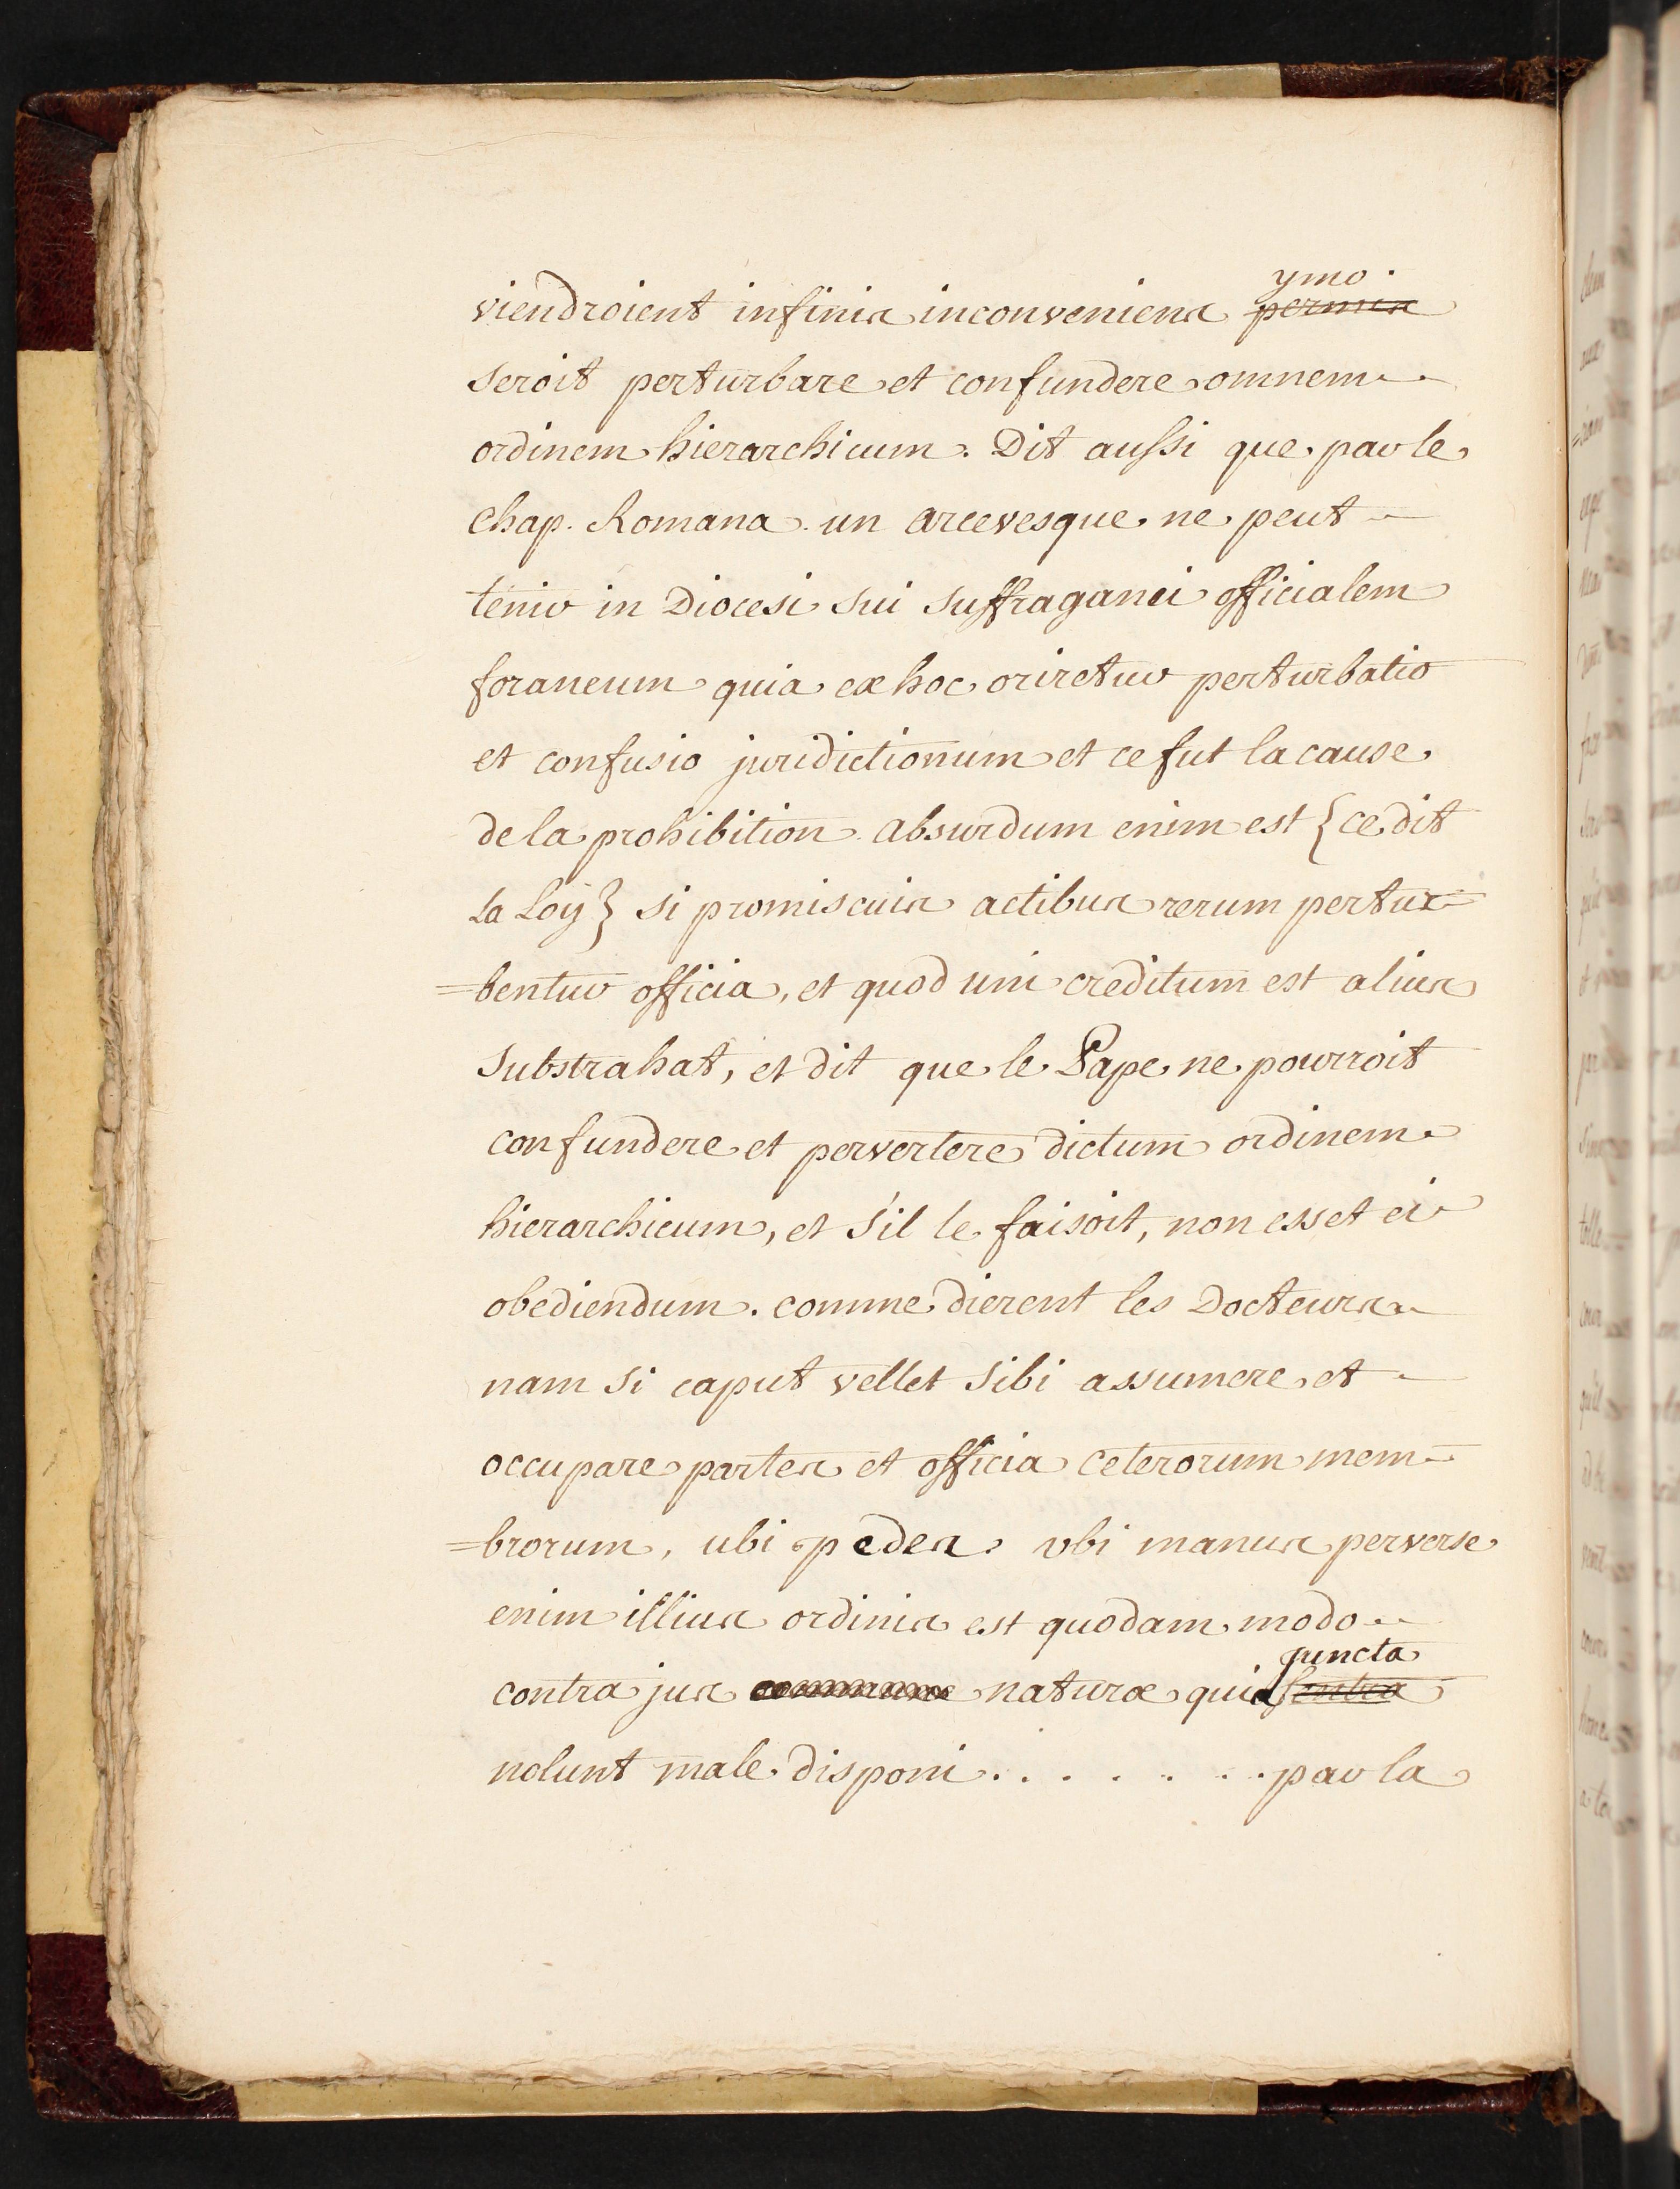 viendroient infinis inconveniens ~~permis~~ ymo
seroit perturbare et confundere omnem
ordinem hierarchicum. Dit aussi que par le
chap. Romana. un arcevesque ne peut
tenir in Diocesi sui suffraganei officialem
foraneum quia ex hoc oriretur perturbatio
et confusio juridictionum et ce fut la cause
de la prohibition. absurdum enim est {ce dit
la Loy} si promiscuis actibus rerum pertur=
=bentur officia, et quod uni creditum est alius
substrahat, et dit que le Pape ne pourroit
confundere et pervertere dictum ordinem
hierarchicum, et s'il le faisoit, non esset ei
obediendum. comme dierent les Docteurs
nam si caput vellet sibi assumere et
occupare partes et officia ceterorum mem=
=brorum, ubi pedes. vbi manus perverse
enim illius ordinis est quodam modo
contra jus naturæ quia juncta
nolunt male disponi . . . . . . . par la